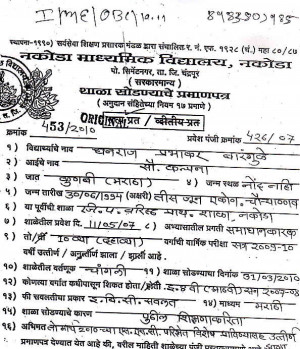 IME/OBC/10.11 8983501985
स्थापना-१९९०) सर्वसेवा शिक्षण प्रसारक मंडळ द्वारा संचालित र. नं. एफ. १९२८ (चं.) महा ८०/८५
नकोडा माध्यमिक विद्यालय, नकोडा
पो. सिमेंटनगर, ता. जि. चंद्रपूर
(सरकारमान्य)
शाळा सोडण्याचे प्रमाणपत्र
(अनुदान संहितेच्या नियम १७ प्रमाणे)
ORIGINAL प्रत / द्वितीय-प्रत
क्रमांक 453/2010 प्रवेश पंजी क्रमांक 426/07
१ विद्यार्थ्याचे नाव धनराज प्रभाकर
२ आईचे नाव सौ. कल्पना
३ जात कुणबी (मराठा) ४ जन्म स्थळ नोंद नाही
५ जन्म तारीख 30/06/1994 (अक्षरी) तीस जून एकोण. चौऱ्याण्णव
६ या पूर्वीची शाळा जि. प. वरिष्ठ प्राथ. शाळा, नकोडा
७ शाळेतील प्रवेश दि. 11/05/07 ८ अभ्यासातील प्रगती समाधानकारक
९ तो/ती १० व्या (दहाव्या) वर्गाची वार्षिक परीक्षा सत्र 2009-10
वर्षी उत्तीर्ण / अनुत्तीर्ण झाला / झाली आहे.
१० शाळेतील वर्तणूक चांगली ११ शाळा सोडण्याचा दिनांक 31/03/2010
१२ कोणत्या वर्गात कधीपासून शिकत होता/होती इ. ५ वी सत्र 2007-08
१३ फी सवलतीचा प्रकार इ. बि. सी. सवलत १४ माध्यम मराठी
१५ शाळा सोडण्याचे कारण पुढील शिक्षणाकरिता
१६ अभिमत मार्च २०१० च्या एस. एस. सी. परिक्षेत विशेष प्राविण्यासह उत्तीर्ण
प्रमाणपत्र देण्यात येत आहे की, वरील माहिती शाळेच्या